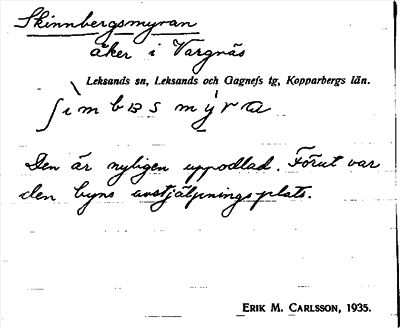 Skinnbergsmyran
åker i Vargnäs
Leksands sn, Leksands och Gagnefs tg, Kopparbergs län.
Den är nyligen uppodlad. Förut var
den byns avstjälpningsplats.
ERIK M. CARLSSON, 1935.